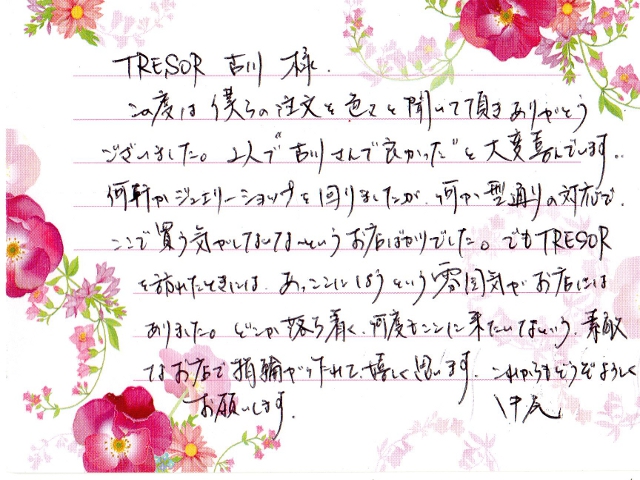 TRESOR 古川 様.
この度は僕らの注文を色々と聞いて頂きありがとう
ございました。2人で"古川さんで良かった"と大変喜んでいます。
何軒かジュエリーショップを回りましたが、何か型通りの対応で、
ここで買う気がしないな〜というお店ばかりでした。でもTRESOR
を訪れたときには、あっここにしようという雰囲気がお店には
ありました。どこか落ち着く、何度もここに来たいなという、素敵
なお店で指輪が作れて、嬉しく思います。これからもどうぞよろしく
お願いします.